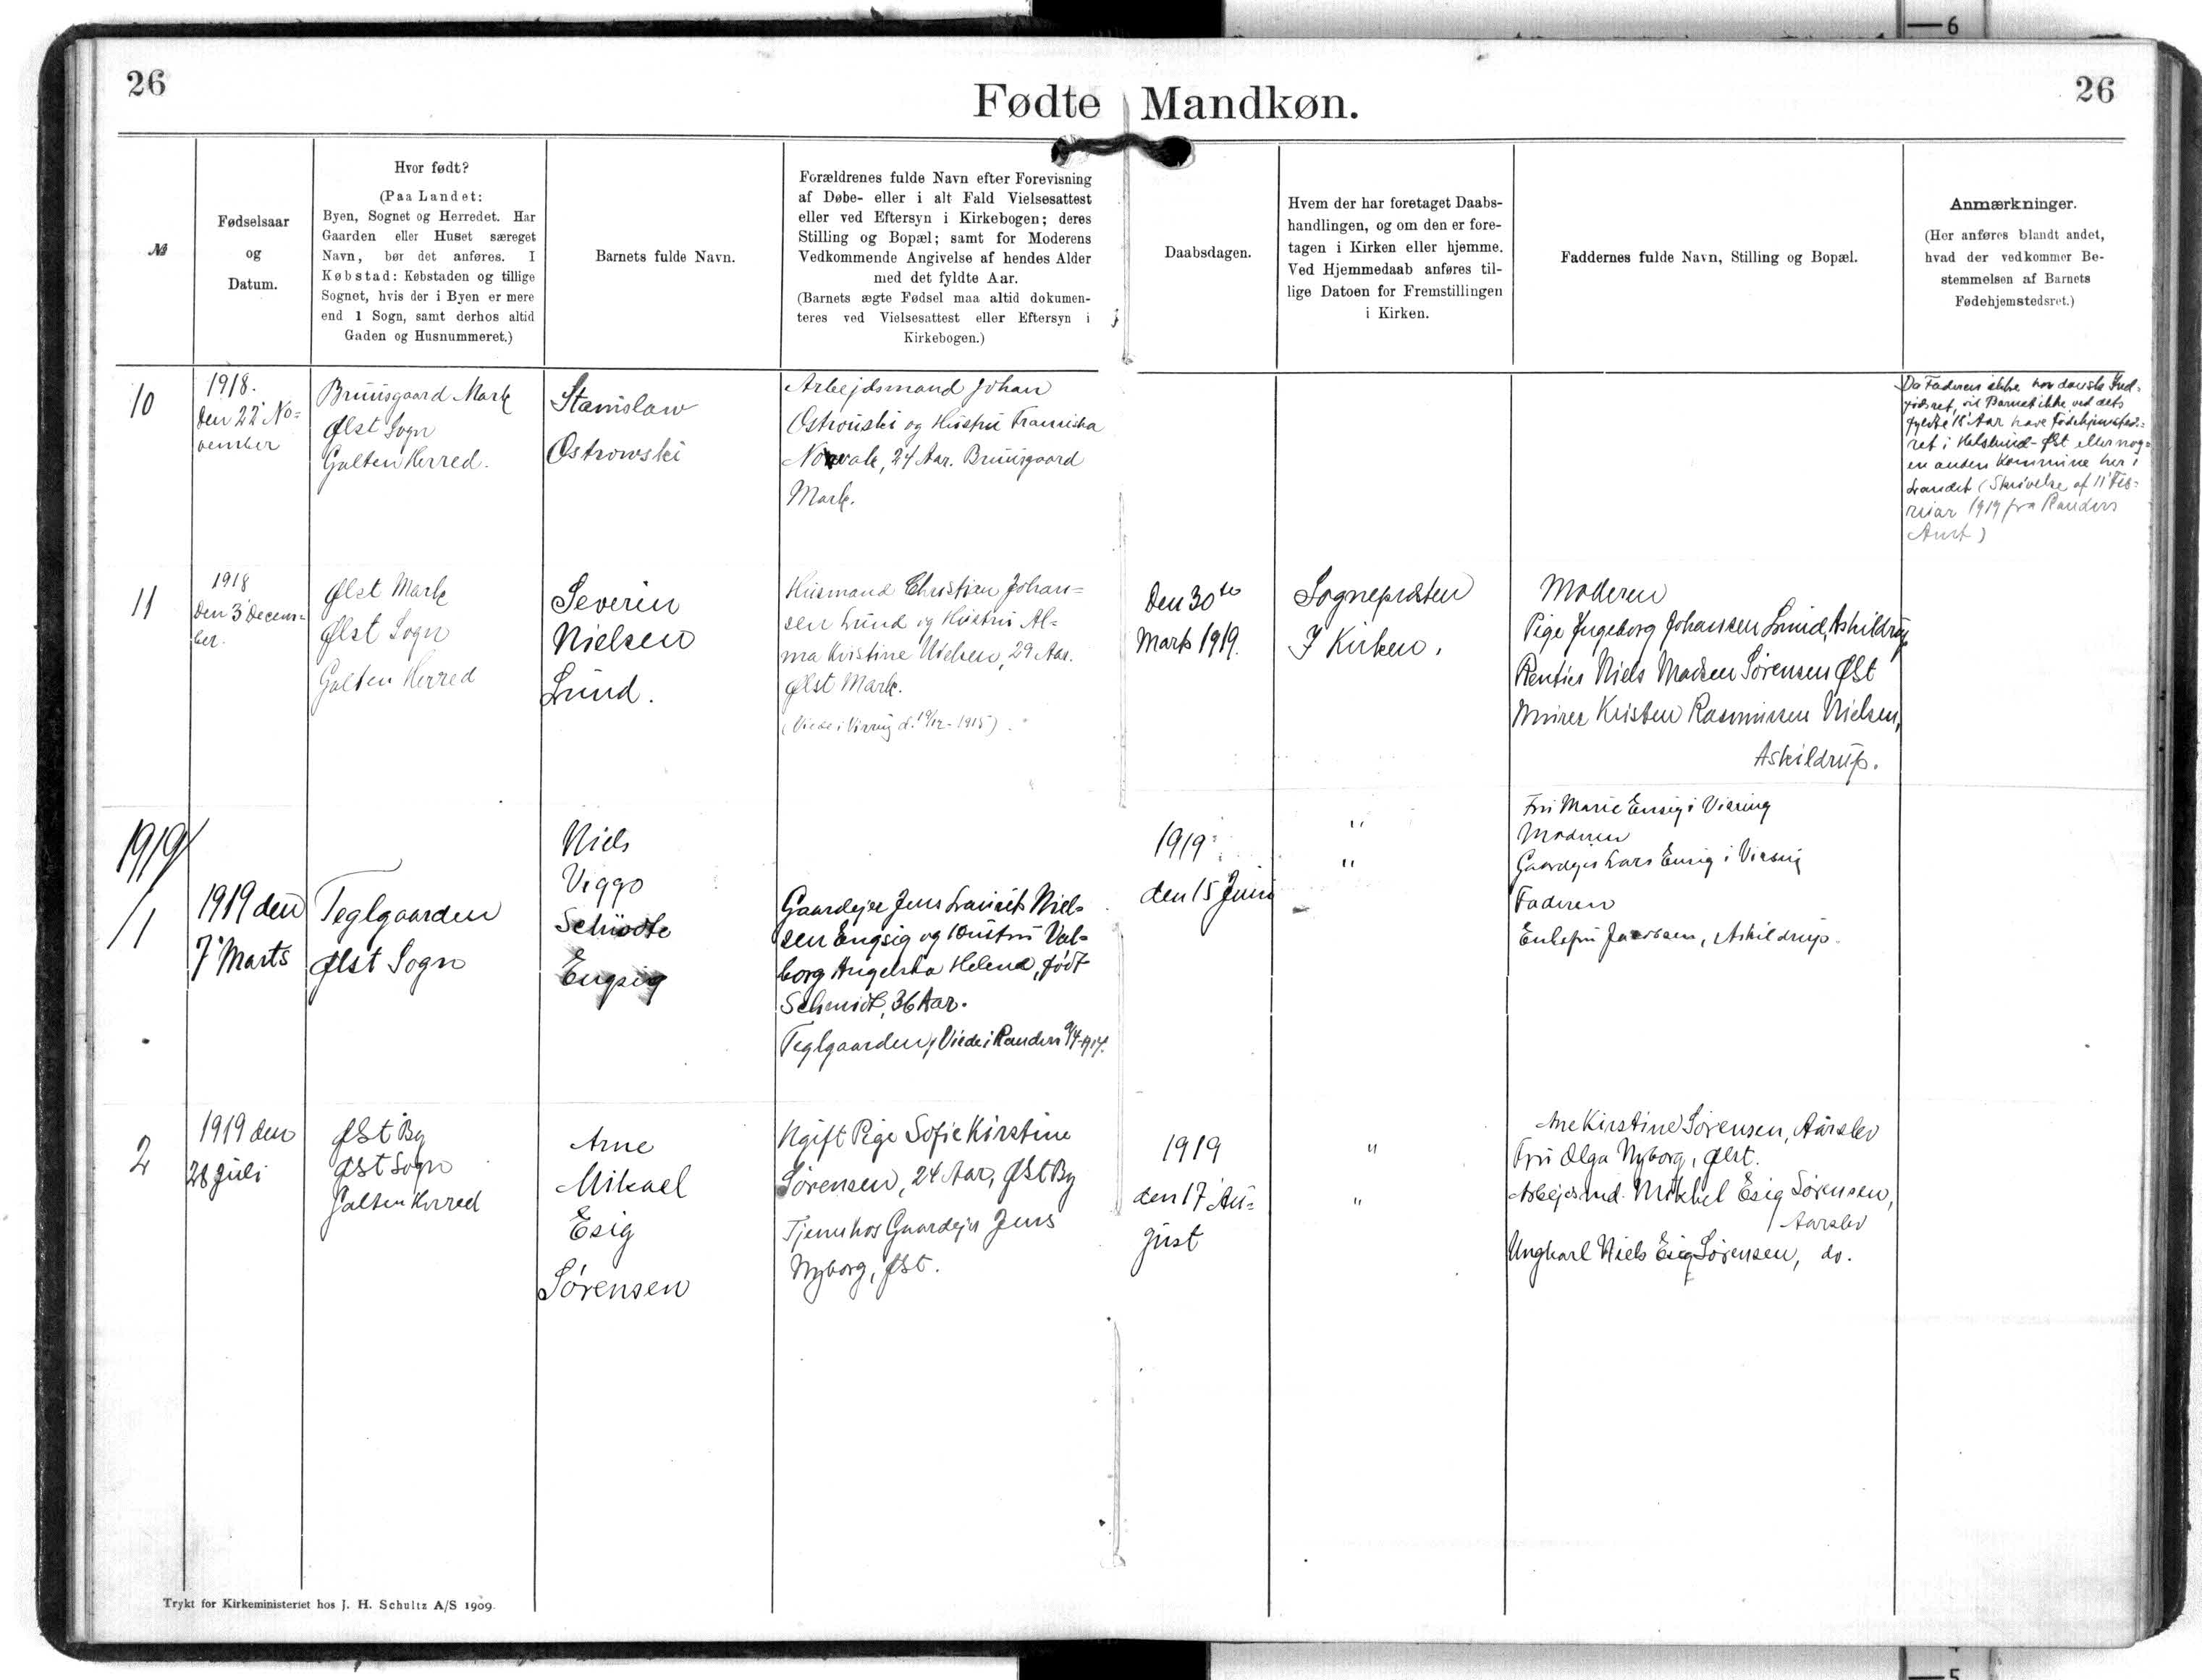 6
26
Fødte Mandkøn.
26
№
Fødselsaar
og
Datum.
Hvor født?
(Paa Landet:
Byen, Sognet og Herredet. Har
Gaarden eller Huset særeget
Navn, bør det anføres. I
Købstad: Købstaden og tillige
Sognet, hvis der i Byen er mere
end 1 Sogn, samt derhos altid
Gaden og Husnummeret.)
Barnets fulde Navn.
Forældrenes fulde Navn efter Forevisning
af Døbe- eller i alt Fald Vielsesattest
eller ved Eftersyn i Kirkebogen; deres
Stilling og Bopæl; samt for Moderens
Vedkommende Angivelse af hendes Alder
med det fyldte Aar.
(Barnets ægte Fødsel maa altid dokumen-
teres ved Vielsesattest eller Eftersyn i
Kirkebogen.)
Daabsdagen.
Hvem der har foretaget Daabs-
handlingen, og om den er fore-
tagen i Kirken eller hjemme.
Ved Hjemmedaab anføres til-
lige Datoen for Fremstillingen
i Kirken.
Faddernes fulde Navn, Stilling og Bopæl.
Anmærkninger.
(Her anføres blandt andet,
hvad der vedkommer Be-
stemmelsen af Barnets
Fødehjemstedsret.)
10
1918.
Den 22' No=
vember
Bruusgaard Mark
Ølst Sogn
Galten Herred.
Stanislaw
Ostrowski
Arbejdsmand Johan
Ostrouski og Hustru Franciska
Norvak, 24 Aar. Bruusgaard
Mark.
Da Faderen ikke har dansk Ind=
fødsret, vil Barnet ikke ved dets
fyldte 18' Aar have Fødehjemsteds=
ret i Halslund-Ølst eller nog=
en anden Kommune her i
Landet (Skrivelse af 11' Feb=
ruar 1919 fra Randers
Amt)
11
1918
Den 3' Decem=
ber.
Ølst Mark
Ølst Sogn
Galten Herred
Severin
Nielsen
Lund.
Husmand Christian Johan=
sen Lund og Hustru Al=
ma Kristine Nielsen, 29 Aar.
Ølst Mark.
(Viede i Virring d. 19/12-1915).
Den 30te
Marts 1919.
Sognepræsten
I Kirken.
Moderen
Pige Ingeborg Johansen Lund, Askildrup
Rentier Niels Madsen Sørensen Ølst
Murer Kristen Rasmussen Nielsen,
Askildrup.
1919
1
1919 den
7' Marts
Teglgaarden
Ølst Sogn
Niels
Viggo
Schiødte
Engsig
Gaardejer Jens Laurits Niel=
sen Engsig og Hustru Val=
borg Angelika Helena, født
Schmidt, 36 Aar.
Teglgaarden, Viede i Randers 9/4-1914.
1919
den 15 Juni
"
"
Fru Marie Ensig i Virring
Moderen
Gaardejer Lars Ensig i Virring
Faderen
Enkefru Jacobsen, Askildrup.
2
1919 den
28 Juli
Ølst By
Ølst Sogn
Galten Herred
Arne
Mikael
Esig
Sørensen
Ugift Pige Sofie Kirstine
Sørensen, 24 Aar, Ølst By
Tjener hos Gaardejer Jens
Nyborg, Ølst.
1919
den 17' Au=
gust
"
"
Ane Kirstine Sørensen, Aarslev
Fru Olga Nyborg, Ølst.
Arbejdsmd. Mikkel Esig Sørensen,
Aarslev
Ungkarl Niels Esig Sørensen, do.
Trykt for Kirkeministeriet hos J. H. Schultz A/S 1909.
5